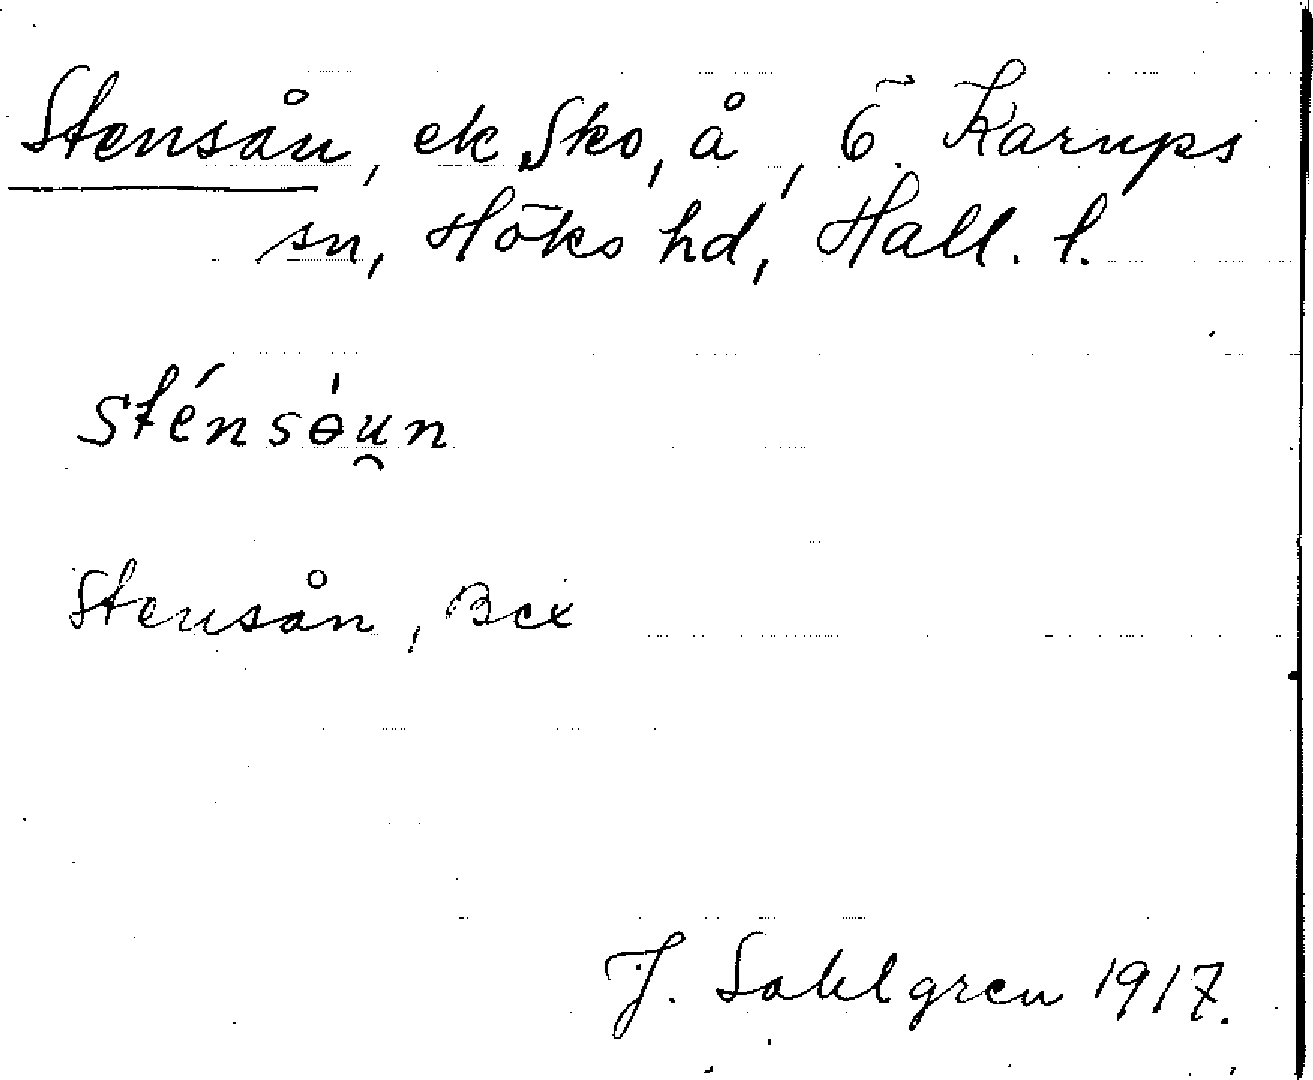 Stensån, ek Sko, å, Ö. Karups
sn, Höks hd, Hall. l.
sténsɵ́u̯n
Stensån, Bex
J. Sahlgren 1917.